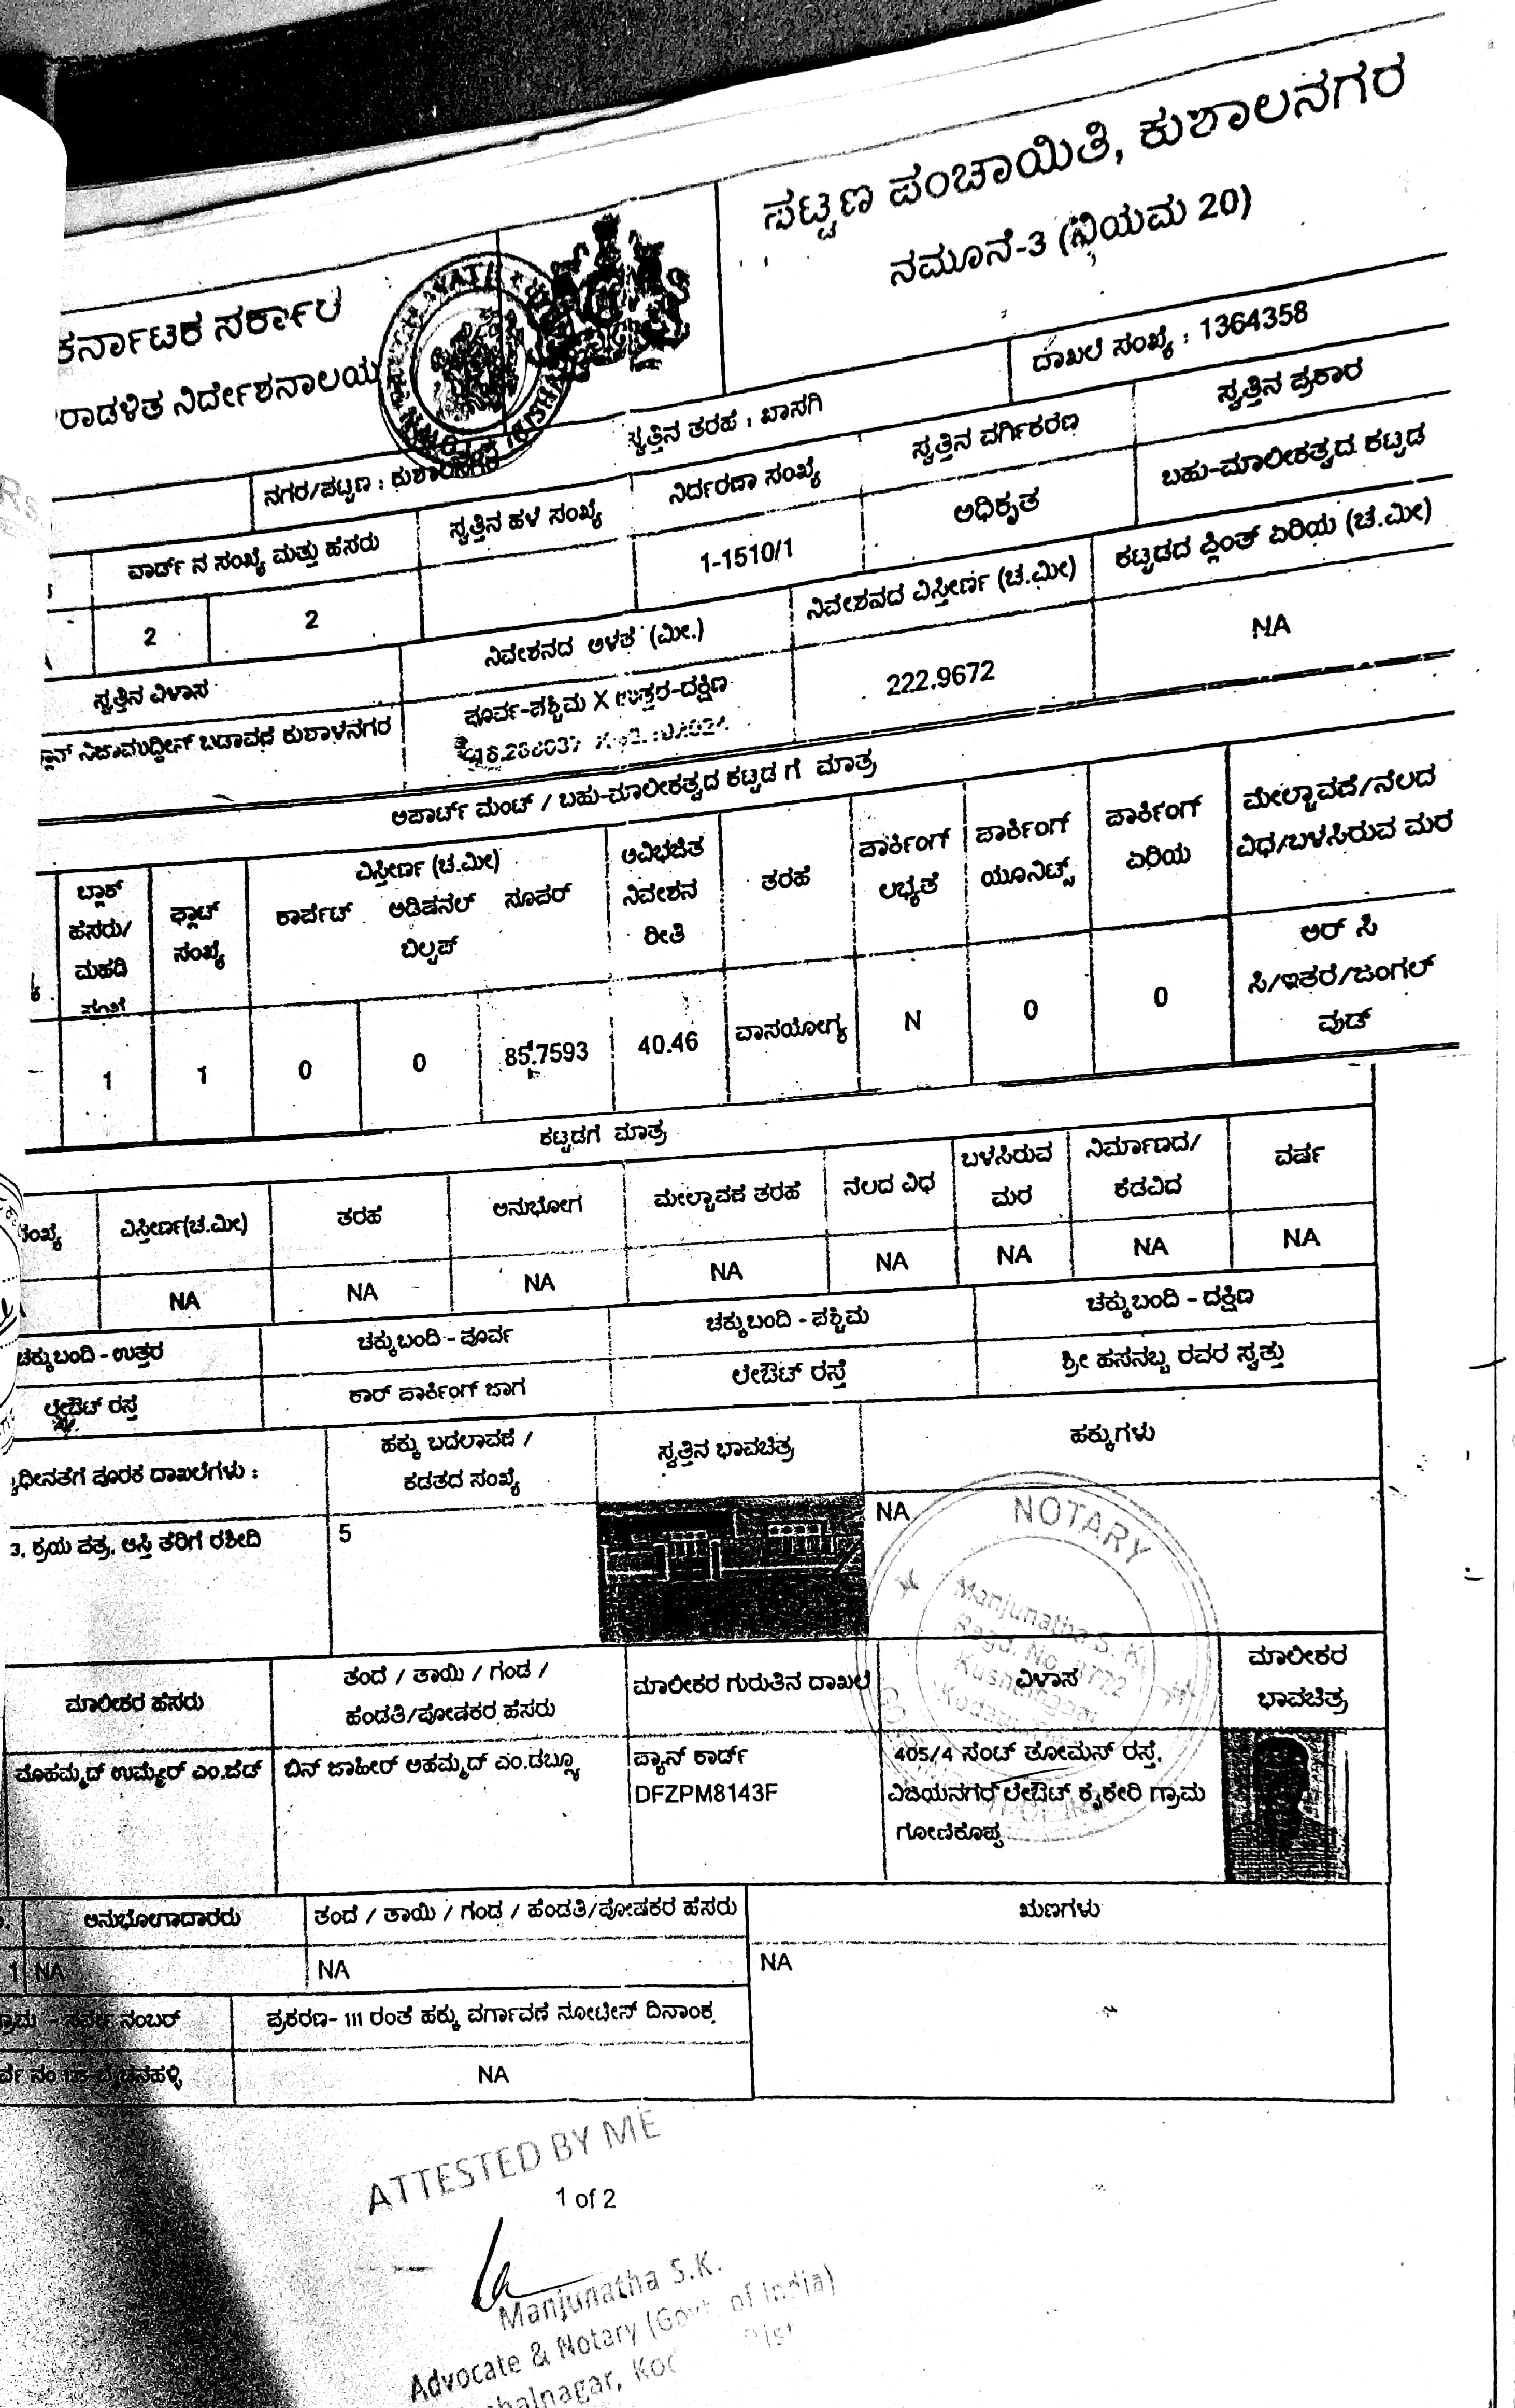 ಪಟ್ಟಣ ಪಂಚಾಯಿತಿ, ಕುಶಾಲನಗರ
ನಮೂನೆ-3 (ನಿಯಮ 20)
ಕರ್ನಾಟಕ ಸರ್ಕಾರ
ರಾಡಳಿತ ನಿರ್ದೇಶನಾಲಯ
ದಾಖಲೆ ಸಂಖ್ಯೆ : 1364358
ನಗರ/ಪಟ್ಟಣ : ಕುಶಾಲನಗರ
ಸ್ವತ್ತಿನ ತರಹ : ಖಾಸಗಿ
ವಾರ್ಡ್ ನ ಸಂಖ್ಯೆ ಮತ್ತು ಹೆಸರು
ಸ್ವತ್ತಿನ ಹಳೆ ಸಂಖ್ಯೆ
ನಿರ್ದರಣಾ ಸಂಖ್ಯೆ
ಸ್ವತ್ತಿನ ವರ್ಗಿಕರಣ
ಸ್ವತ್ತಿನ ಪ್ರಕಾರ
2 2 1-1510/1 ಅಧಿಕೃತ ಬಹು-ಮಾಲೀಕತ್ವದ ಕಟ್ಟಡ
ಸ್ವತ್ತಿನ ವಿಳಾಸ
ನಿವೇಶನದ ಅಳತೆ (ಮೀ.)
ನಿವೇಶನದ ವಿಸ್ತೀರ್ಣ (ಚ.ಮೀ)
ಕಟ್ಟಡದ ಪ್ಲಿಂತ್ ಏರಿಯ (ಚ.ಮೀ)
ನಿಜಾಮುದ್ದೀನ್ ಬಡಾವಣೆ ಕುಶಾಳನಗರ
ಪೂರ್ವ-ಪಶ್ಚಿಮ X ಉತ್ತರ-ದಕ್ಷಿಣ
222.9672
NA
ಅಪಾರ್ಟ್ ಮೆಂಟ್ / ಬಹು-ಮಾಲೀಕತ್ವದ ಕಟ್ಟಡ ಗೆ ಮಾತ್ರ
ಬ್ಲಾಕ್ ಹೆಸರು/ ಮಹಡಿ
ಫ್ಲಾಟ್ ಸಂಖ್ಯೆ
ವಿಸ್ತೀರ್ಣ (ಚ.ಮೀ)
ಕಾರ್ಪೆಟ್ ಅಡಿಷನಲ್ ಸೂಪರ್
ಬಿಲ್ಟಪ್
ಅವಿಭಜಿತ ನಿವೇಶನ ರೀತಿ
ತರಹ
ಪಾರ್ಕಿಂಗ್ ಲಭ್ಯತೆ
ಪಾರ್ಕಿಂಗ್ ಯೂನಿಟ್ಸ್
ಪಾರ್ಕಿಂಗ್ ಏರಿಯ
ಮೇಲ್ಚಾವಣೆ/ನೆಲದ ವಿಧ/ಬಳಸಿರುವ ಮರ
1 1 0 0 85.7593 40.46 ವಾಸಯೋಗ್ಯ N 0 0
ಆರ್ ಸಿ
ಸಿ/ಇತರೆ/ಜಂಗಲ್
ವುಡ್
ಕಟ್ಟಡಗೆ ಮಾತ್ರ
ವಿಸ್ತೀರ್ಣ(ಚ.ಮೀ)
ತರಹೆ
ಅನುಭೋಗ
ಮೇಲ್ಚಾವಣೆ ತರಹೆ
ನೆಲದ ವಿಧ
ಬಳಸಿರುವ ಮರ
ನಿರ್ಮಾಣದ/ ಕೆಡವಿದ
ವರ್ಷ
NA NA NA NA NA NA NA NA
ಚಕ್ಕುಬಂದಿ - ಉತ್ತರ
ಚಕ್ಕುಬಂದಿ - ಪೂರ್ವ
ಚಕ್ಕುಬಂದಿ - ಪಶ್ಚಿಮ
ಚಕ್ಕುಬಂದಿ - ದಕ್ಷಿಣ
ಲೇಔಟ್ ರಸ್ತೆ
ಕಾರ್ ಪಾರ್ಕಿಂಗ್ ಜಾಗ
ಲೇಔಟ್ ರಸ್ತೆ
ಶ್ರೀ ಹಸನಬ್ಬ ರವರ ಸ್ವತ್ತು
ಧೀನತೆಗೆ ಪೂರಕ ದಾಖಲೆಗಳು :
ಹಕ್ಕು ಬದಲಾವಣೆ /
ಕಡತದ ಸಂಖ್ಯೆ
ಸ್ವತ್ತಿನ ಭಾವಚಿತ್ರ
ಹಕ್ಕುಗಳು
3, ಕ್ರಯ ಪತ್ರ, ಆಸ್ತಿ ತೆರಿಗೆ ರಶೀದಿ
5
NA
NOTARY
Manjunatha S. K.
Regd. No.
ಮಾಲೀಕರ ಹೆಸರು
ತಂದೆ / ತಾಯಿ / ಗಂಡ /
ಹೆಂಡತಿ/ಪೋಷಕರ ಹೆಸರು
ಮಾಲೀಕರ ಗುರುತಿನ ದಾಖಲೆ
ವಿಳಾಸ
ಮಾಲೀಕರ
ಭಾವಚಿತ್ರ
ಮೊಹಮ್ಮದ್ ಉಮ್ಮೇರ್ ಎಂ.ಜೆಡ್
ಬಿನ್ ಜಾಹೀರ್ ಅಹಮ್ಮದ್ ಎಂ.ಡಬ್ಲ್ಯೂ
ಪ್ಯಾನ್ ಕಾರ್ಡ್
DFZPM8143F
405/4 ಸೆಂಟ್ ತೋಮಸ್ ರಸ್ತೆ,
ವಿಜಯನಗರ ಲೇಔಟ್ ಕೈಕೇರಿ ಗ್ರಾಮ
ಗೋಣಿಕೊಪ್ಪ
ಅನುಭೋಗಾದಾರರು
ತಂದೆ / ತಾಯಿ / ಗಂಡ / ಹೆಂಡತಿ/ಪೋಷಕರ ಹೆಸರು
ಋಣಗಳು
1 NA NA NA
ನಂಬರ್
ಪ್ರಕರಣ- 111 ರಂತೆ ಹಕ್ಕು ವರ್ಗಾವಣೆ ನೋಟೀಸ್ ದಿನಾಂಕ
NA
ATTESTED BY ME
1 of 2
Manjunatha S.K.
Advocate & Notary (Govt. of India)